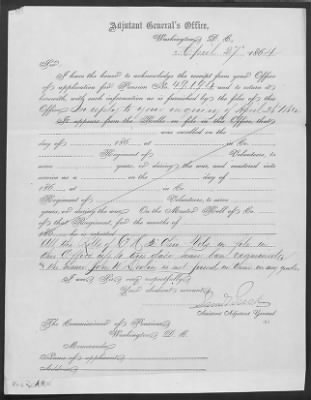 Adjutant General's Office,
Washington, D. C.
April 27" 1864
Sir:
I have the honor to acknowledge the receipt from your Office
of application for Pension No. 49.194 and to return it
herewith, with such information as is furnished by the files of this
Office
It appears from the Rolls on file in this Office, that
was enrolled on the
day of 186 , at in Co.
Regiment of Volunteers, to
serve years, or during the war, and mustered into
service as a on the day of
186 , at in Co.
Regiment of Volunteers, to serve
years, or during the war. On the Muster Roll of Co.
of that Regiment, for the months of
186 , he is reported
All the Rolls of Co. Ohio Vols on file in
this Office up to this date have been examined
& the name John is not found on them in any
I am, Sir, very respectfully,
Your obedient servant,
Assistant Adjutant General
The Commissioner of Pensions,
Washington, D. C.
Memoranda:
Name of applicant,
Address,